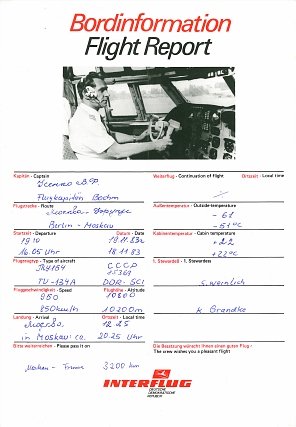 Bordinformation
Flight Report
Kapitän - Captain
Weiterflug - Continuation of flight Ortszeit - Local time
Flugkapitän Boehm
Flugstrecke - Route
Außentemperatur - Outside-temperature
- 61
Berlin - Moskau
- 51°C
Startzeit - Departure Datum - Date
Kabinentemperatur - Cabin temperature
1910 19.11.83г.
+22
16.05 Uhr 18.11.83
+22°C
Flugzeugtyp - Type of aircraft
1. Stewardeß - 1. Stewardess
ТУ154 СССР
TU-134A DDR-SCI
S. Wernlich
Fluggeschwindigkeit - Speed Flughöhe - Altitude
950 10600
850 km/h 10200 m
K. Brandke
Landung - Arrival Ortszeit - Local time
Москва 12 25
in Moskau: ca. 20.25 Uhr
Bitte weiterreichen - Please pass it on
Die Besatzung wünscht Ihnen einen guten Flug -
The crew wishes you a pleasant flight
3200 km
INTERFLUG
DEUTSCHE
DEMOKRATISCHE
REPUBLIK